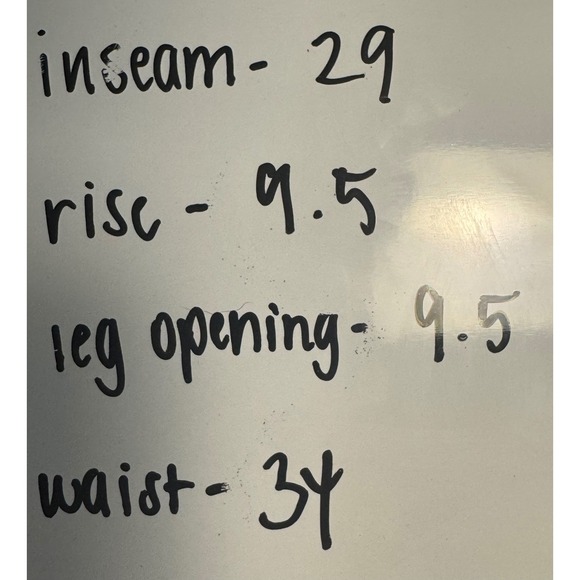 inseam - 29
rise - 9.5
leg opening - 9.5
waist - 34